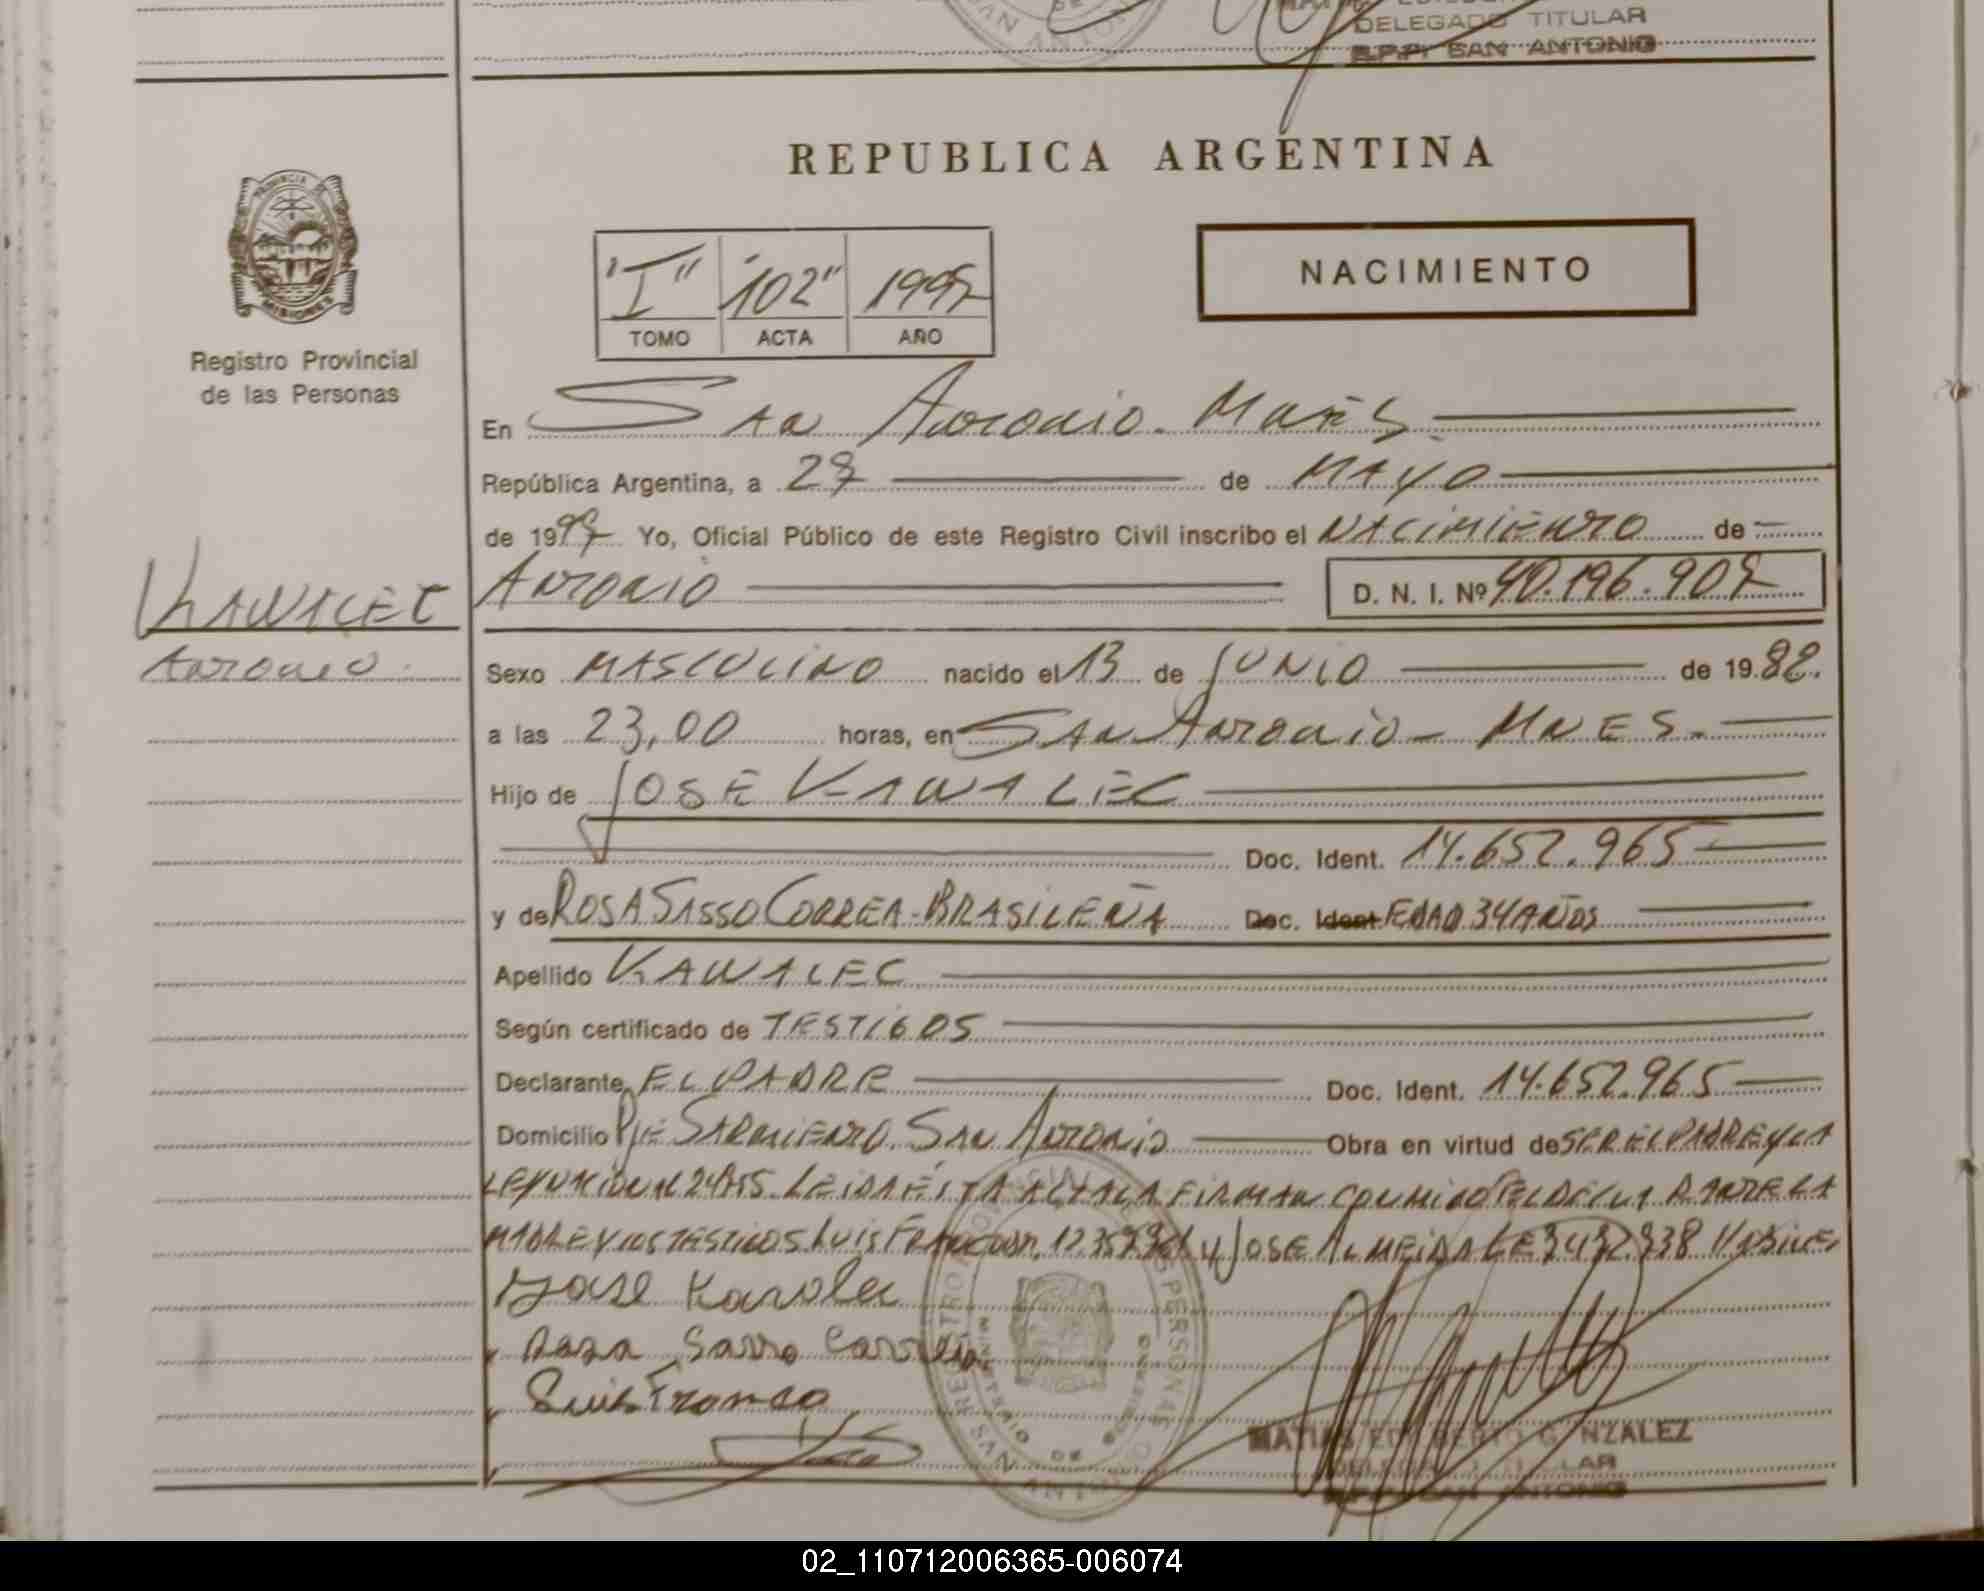 DELEGADO TITULAR
R.P.P. SAN ANTONIO
REPUBLICA ARGENTINA
"I" "102" 1997
TOMO ACTA AÑO
NACIMIENTO
PROVINCIA DE
MISIONES
Registro Provincial
de las Personas
En San Antonio - Mnes.
República Argentina, a 27 de MAYO
de 1997 Yo, Oficial Público de este Registro Civil inscribo el NACIMIENTO de
KAWALEC
Antonio
ANTONIO D. N. I. Nº 40.196.907
Sexo MASCULINO nacido el 13 de JUNIO de 1982.
a las 23,00 horas, en San Antonio - MNES.
Hijo de JOSE KAWALEC
Doc. Ident. 14.652.965
y de ROSA SASSO CORREA - BRASILEÑA Doc. Ident EDAD 34 AÑOS
Apellido KAWALEC
Según certificado de TESTIGOS
Declarante EL PADRE Doc. Ident. 14.652.965
Domicilio Pje SARMIENTO. SAN ANTONIO Obra en virtud de SER EL PADRE Y LA
LEIDA ESTA ACTA LA FIRMAN CONMIGO EL DECLARANTE LA
MADRE Y LOS TESTIGOS LUIS FRANCO Y JOSE ALMEIDA
Jose Kavolec
Rosa Sasso Correia
Luis Franco
MATIAS EDILBERTO GONZALEZ
DELEGADO TITULAR
R.P.P. SAN ANTONIO
02_110712006365-006074